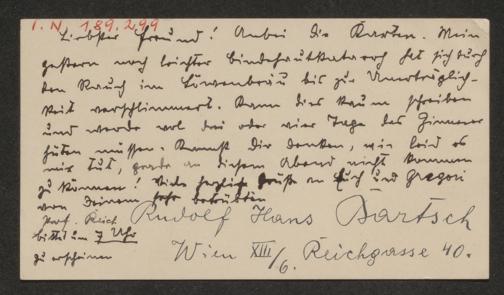 I. N. 189.299
Liebster Freund! Anbei die Karten. Mein
gestern noch leichter Bindehautkatarrh hat sich durch
den Rauch im Löwenbräu bis zur Unerträglich-
keit verschlimmert. Kann dies kaum schreiben
und werde wol drei oder vier Tage das Zimmer
hüten müssen. Kannst Dir denken, wie leid es
mir tut, gerade an diesem Abend nicht kommen
zu können! Viele herzliche Grüße an Euch und Gregori
von Deinem sehr betrübten
Rudolf Hans Bartsch
Wien XIII/6. Reichgasse 40.
Prof. Reich
bittet um 7 Uhr
zu erscheinen